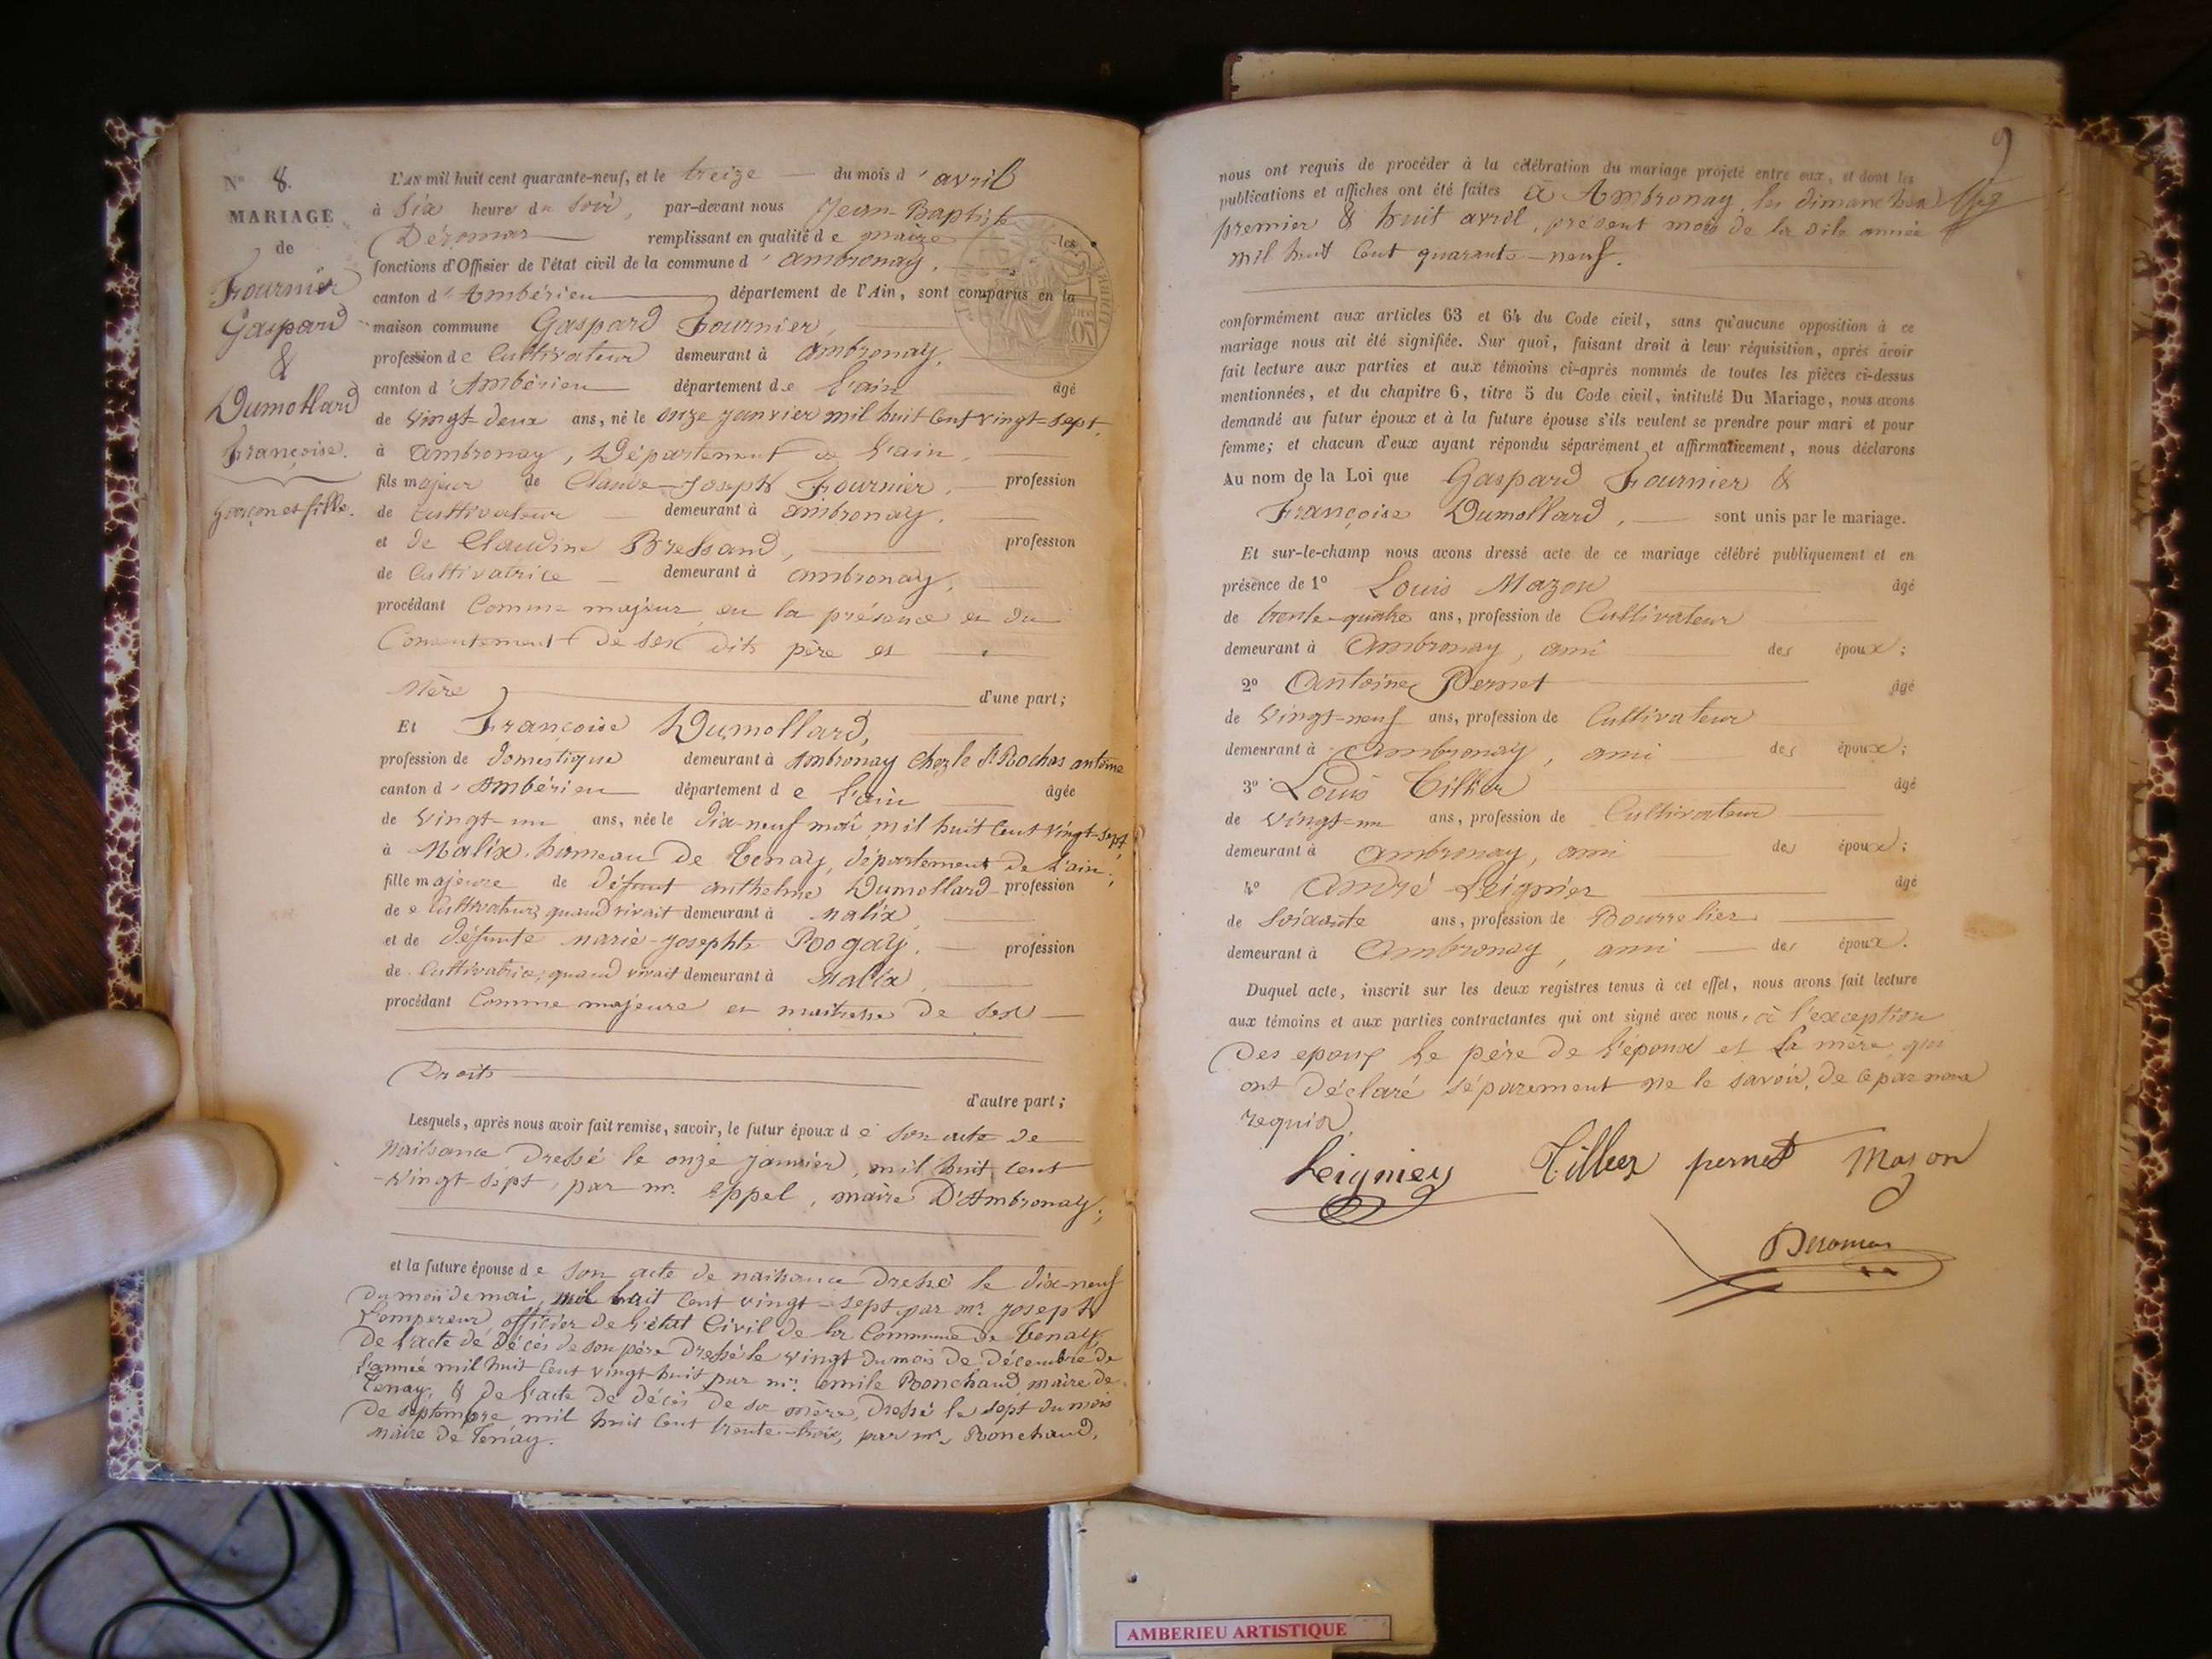 N° 8.
MARIAGE
de
Fournier
Gaspard
&
Dumollard
Françoise.
garçon et fille.
L'AN mil huit cent quarante-neuf, et le treize du mois d'avril
à Six heures du Soir, par-devant nous Jean-Baptiste
Déromas remplissant en qualité de maire les
fonctions d'Officier de l'état civil de la commune d'ambronay,
canton d'Ambérieu département de l'Ain, sont comparus en la
maison commune Gaspard Fournier,
profession de Cultivateur demeurant à ambronay,
canton d'Ambérieu département de l'ain âgé
de vingt-deux ans, né le onze janvier mil huit cent vingt-sept,
à ambronay, Département de l'ain,
fils majeur de Claude-Joseph Fournier, profession
de Cultivateur demeurant à ambronay,
et de Claudine Bressand, profession
de Cultivatrice demeurant à ambronay,
procédant Comme majeur, en la présence et du
Consentement de ses dits père et
Mère d'une part;
Et Françoise Dumollard,
profession de domestique demeurant à Ambronay chez le Sr Rochas antoine
canton d'Ambérieu département de l'ain âgée
de vingt-un ans, née le dix-neuf mai mil huit cent vingt-sept,
à Malix, hameau de Tenay, département de l'ain;
fille majeure de défunt anthelme Dumollard profession
de Cultivateur, quand vivait demeurant à Malix,
et de défunte marie-josephte Rogay, profession
de Cultivatrice, quand vivait demeurant à Malix,
procédant Comme majeure et maitresse de ses
Droits
d'autre part;
Lesquels, après nous avoir fait remise, savoir, le futur époux de son acte de
Naissance dressé le onze janvier, mil huit cent
vingt-sept, par mr. Eppel, maire D'Ambronay;
et la future épouse de son acte de naissance dressé le dix-neuf
du mois de mai, mil huit cent vingt-sept, par mr. joseph
Lempereur, officier de l'état Civil de la Commune de Tenay,
de l'acte de décès de son père dressé le vingt du mois de décembre de
l'année mil huit cent vingt-huit par mr. emile Ronchaud, maire de
Tenay, & de l'acte de décès de sa mère, dressé le sept du mois
de septembre, mil huit cent trente-trois, par mr. Ronchaud,
maire de Tenay.
9
nous ont requis de procéder à la célébration du mariage projeté entre eux, et dont les
publications et affiches ont été faites à Ambronay, les dimanches
premier & huit avril, présent mois de la dite année
mil huit cent quarante-neuf.
conformément aux articles 63 et 64 du Code civil, sans qu'aucune opposition à ce
mariage nous ait été signifiée. Sur quoi, faisant droit à leur réquisition, après avoir
fait lecture aux parties et aux témoins ci-après nommés de toutes les pièces ci-dessus
mentionnées, et du chapitre 6, titre 5 du Code civil, intitulé Du Mariage, nous avons
demandé au futur époux et à la future épouse s'ils veulent se prendre pour mari et pour
femme; et chacun d'eux ayant répondu séparément et affirmativement, nous déclarons
Au nom de la Loi que Gaspard Fournier &
Françoise Dumollard, sont unis par le mariage.
Et sur-le-champ nous avons dressé acte de ce mariage célébré publiquement et en
présence de 1° Louis Mazon âgé
de trente-quatre ans, profession de Cultivateur
demeurant à Ambronay, ami des époux;
2° Antoine Pernet âgé
de vingt-neuf ans, profession de Cultivateur
demeurant à Ambronay, ami des époux;
3° Louis Tillier âgé
de vingt-un ans, profession de Cultivateur
demeurant à Ambronay, ami des époux;
4° André Leignier âgé
de Soixante ans, profession de Bourrelier
demeurant à Ambronay, ami des époux.
Duquel acte, inscrit sur les deux registres tenus à cet effet, nous avons fait lecture
aux témoins et aux parties contractantes qui ont signé avec nous, à l'exception
Des epoux le père de l'époux et la mère qui
ont déclaré séparement ne le savoir, de ce par nous
requis.
Leignier Tillier pernet Mazon
Deromas
AMBERIEU ARTISTIQUE